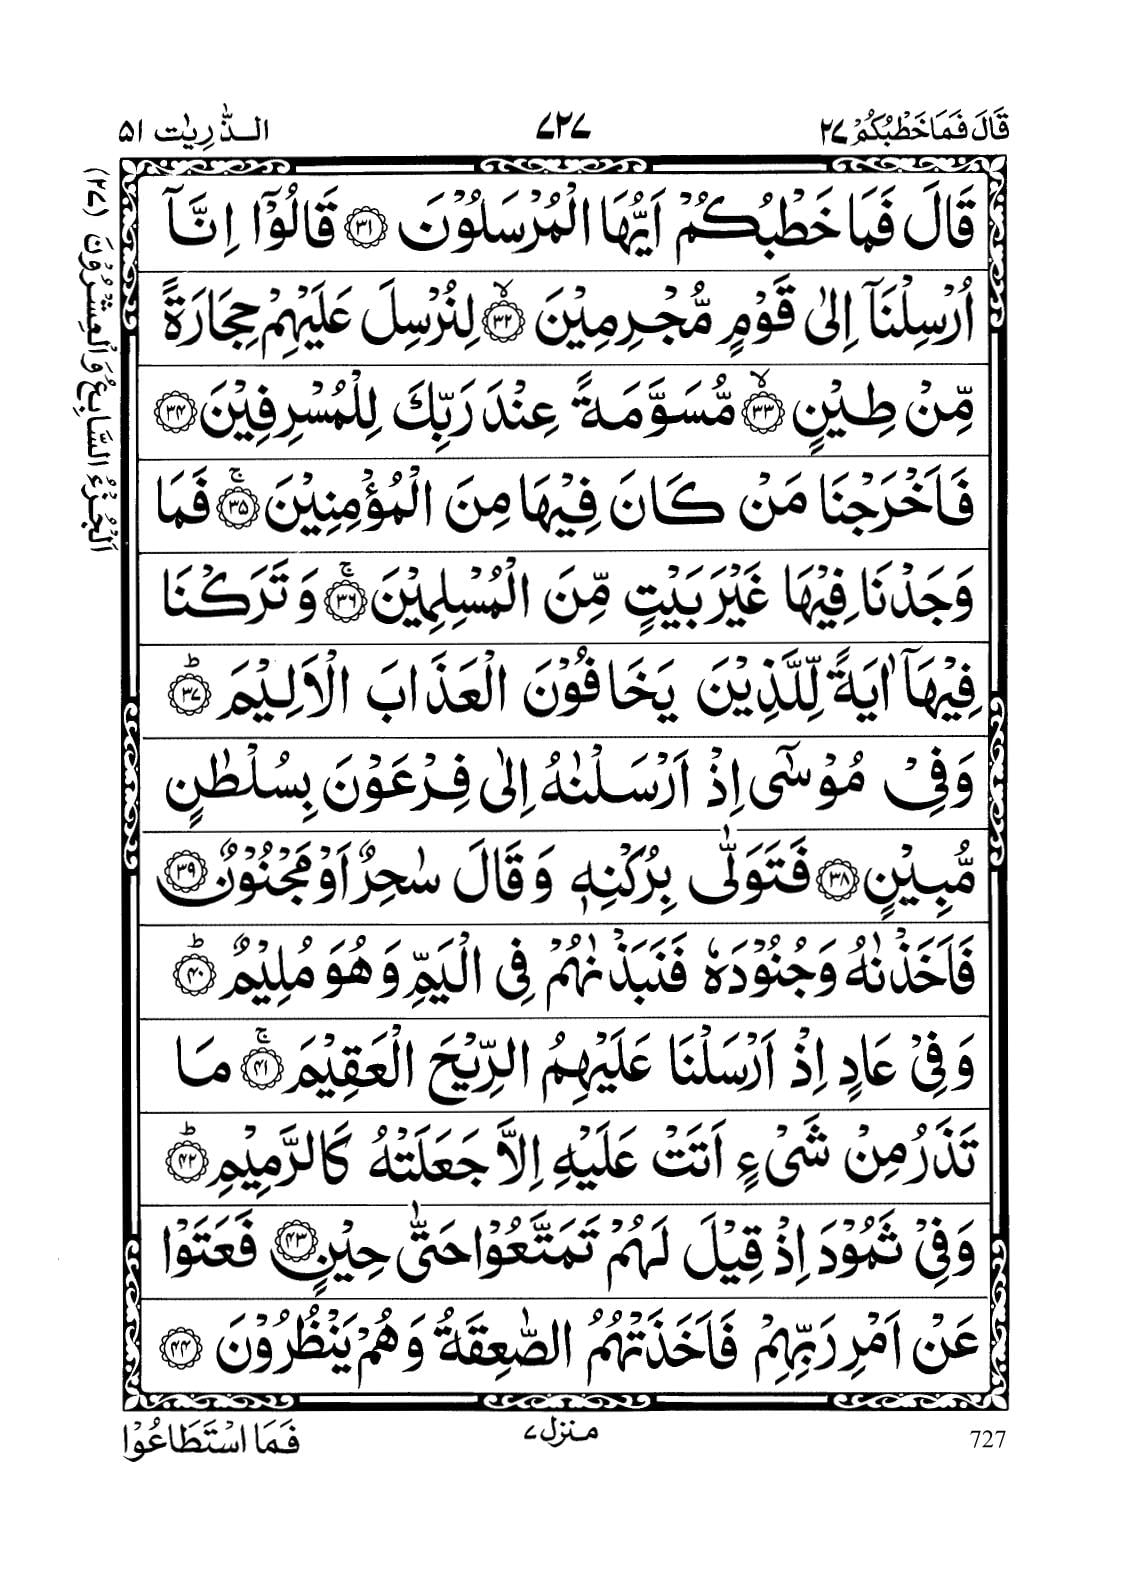 قَالَ فَمَا خَطْبُكُمْ ٢٧
٧٢٧
الذّٰرِيٰت ٥١
اَلْجُزْءُ السَّابِعُ وَالْعِشْرُوْنَ (٢٧)
قَالَ فَمَا خَطْبُكُمْ اَيُّهَا الْمُرْسَلُوْنَ ﴿٣١﴾ قَالُوْٓا اِنَّآ
اُرْسِلْنَآ اِلٰى قَوْمٍ مُّجْرِمِيْنَ ﴿٣٢﴾ۙ لِنُرْسِلَ عَلَيْهِمْ حِجَارَةً
مِّنْ طِيْنٍ ﴿٣٣﴾ۙ مُّسَوَّمَةً عِنْدَ رَبِّكَ لِلْمُسْرِفِيْنَ ﴿٣٤﴾
فَاَخْرَجْنَا مَنْ كَانَ فِيْهَا مِنَ الْمُؤْمِنِيْنَ ﴿٣٥﴾ۚ فَمَا
وَجَدْنَا فِيْهَا غَيْرَ بَيْتٍ مِّنَ الْمُسْلِمِيْنَ ﴿٣٦﴾ۚ وَتَرَكْنَا
فِيْهَآ اٰيَةً لِّلَّذِيْنَ يَخَافُوْنَ الْعَذَابَ الْاَلِيْمَ ﴿٣٧﴾ؕ
وَفِيْ مُوْسٰٓى اِذْ اَرْسَلْنٰهُ اِلٰى فِرْعَوْنَ بِسُلْطٰنٍ
مُّبِيْنٍ ﴿٣٨﴾ فَتَوَلّٰى بِرُكْنِهٖ وَقَالَ سٰحِرٌ اَوْ مَجْنُوْنٌ ﴿٣٩﴾
فَاَخَذْنٰهُ وَجُنُوْدَهٗ فَنَبَذْنٰهُمْ فِى الْيَمِّ وَهُوَ مُلِيْمٌ ﴿٤٠﴾ؕ
وَفِيْ عَادٍ اِذْ اَرْسَلْنَا عَلَيْهِمُ الرِّيْحَ الْعَقِيْمَ ﴿٤١﴾ۚ مَا
تَذَرُ مِنْ شَىْءٍ اَتَتْ عَلَيْهِ اِلَّا جَعَلَتْهُ كَالرَّمِيْمِ ﴿٤٢﴾ؕ
وَفِيْ ثَمُوْدَ اِذْ قِيْلَ لَهُمْ تَمَتَّعُوْا حَتّٰى حِيْنٍ ﴿٤٣﴾ فَعَتَوْا
عَنْ اَمْرِ رَبِّهِمْ فَاَخَذَتْهُمُ الصّٰعِقَةُ وَهُمْ يَنْظُرُوْنَ ﴿٤٤﴾
727
منزل ٧
فَمَا اسْتَطَاعُوْا